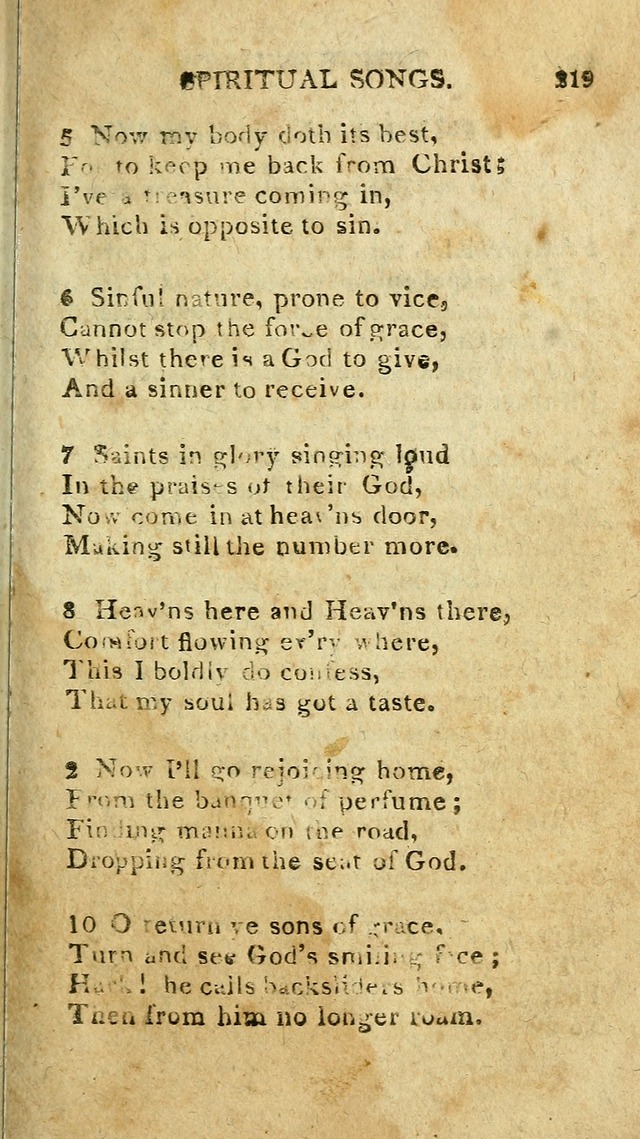 SPIRITUAL SONGS. 219
5 Now my body doth its best,
For to keep me back from Christ;
I've a treasure coming in,
Which is opposite to sin.
6 Sinful nature, prone to vice,
Cannot stop the force of grace,
Whilst there is a God to give,
And a sinner to receive.
7 Saints in glory singing loud
In the praises of their God,
Now come in at heav'ns door,
Making still the number more.
8 Heav'ns here and Heav'ns there,
Comfort flowing ev'ry where,
This I boldly do confess,
That my soul has got a taste.
2 Now I'll go rejoicing home,
From the banquet of perfume;
Finding manna on the road,
Dropping from the seat of God.
10 O return ye sons of grace,
Turn and see God's smiling face;
Hark! he calls backsliders home,
Then from him no longer roam.